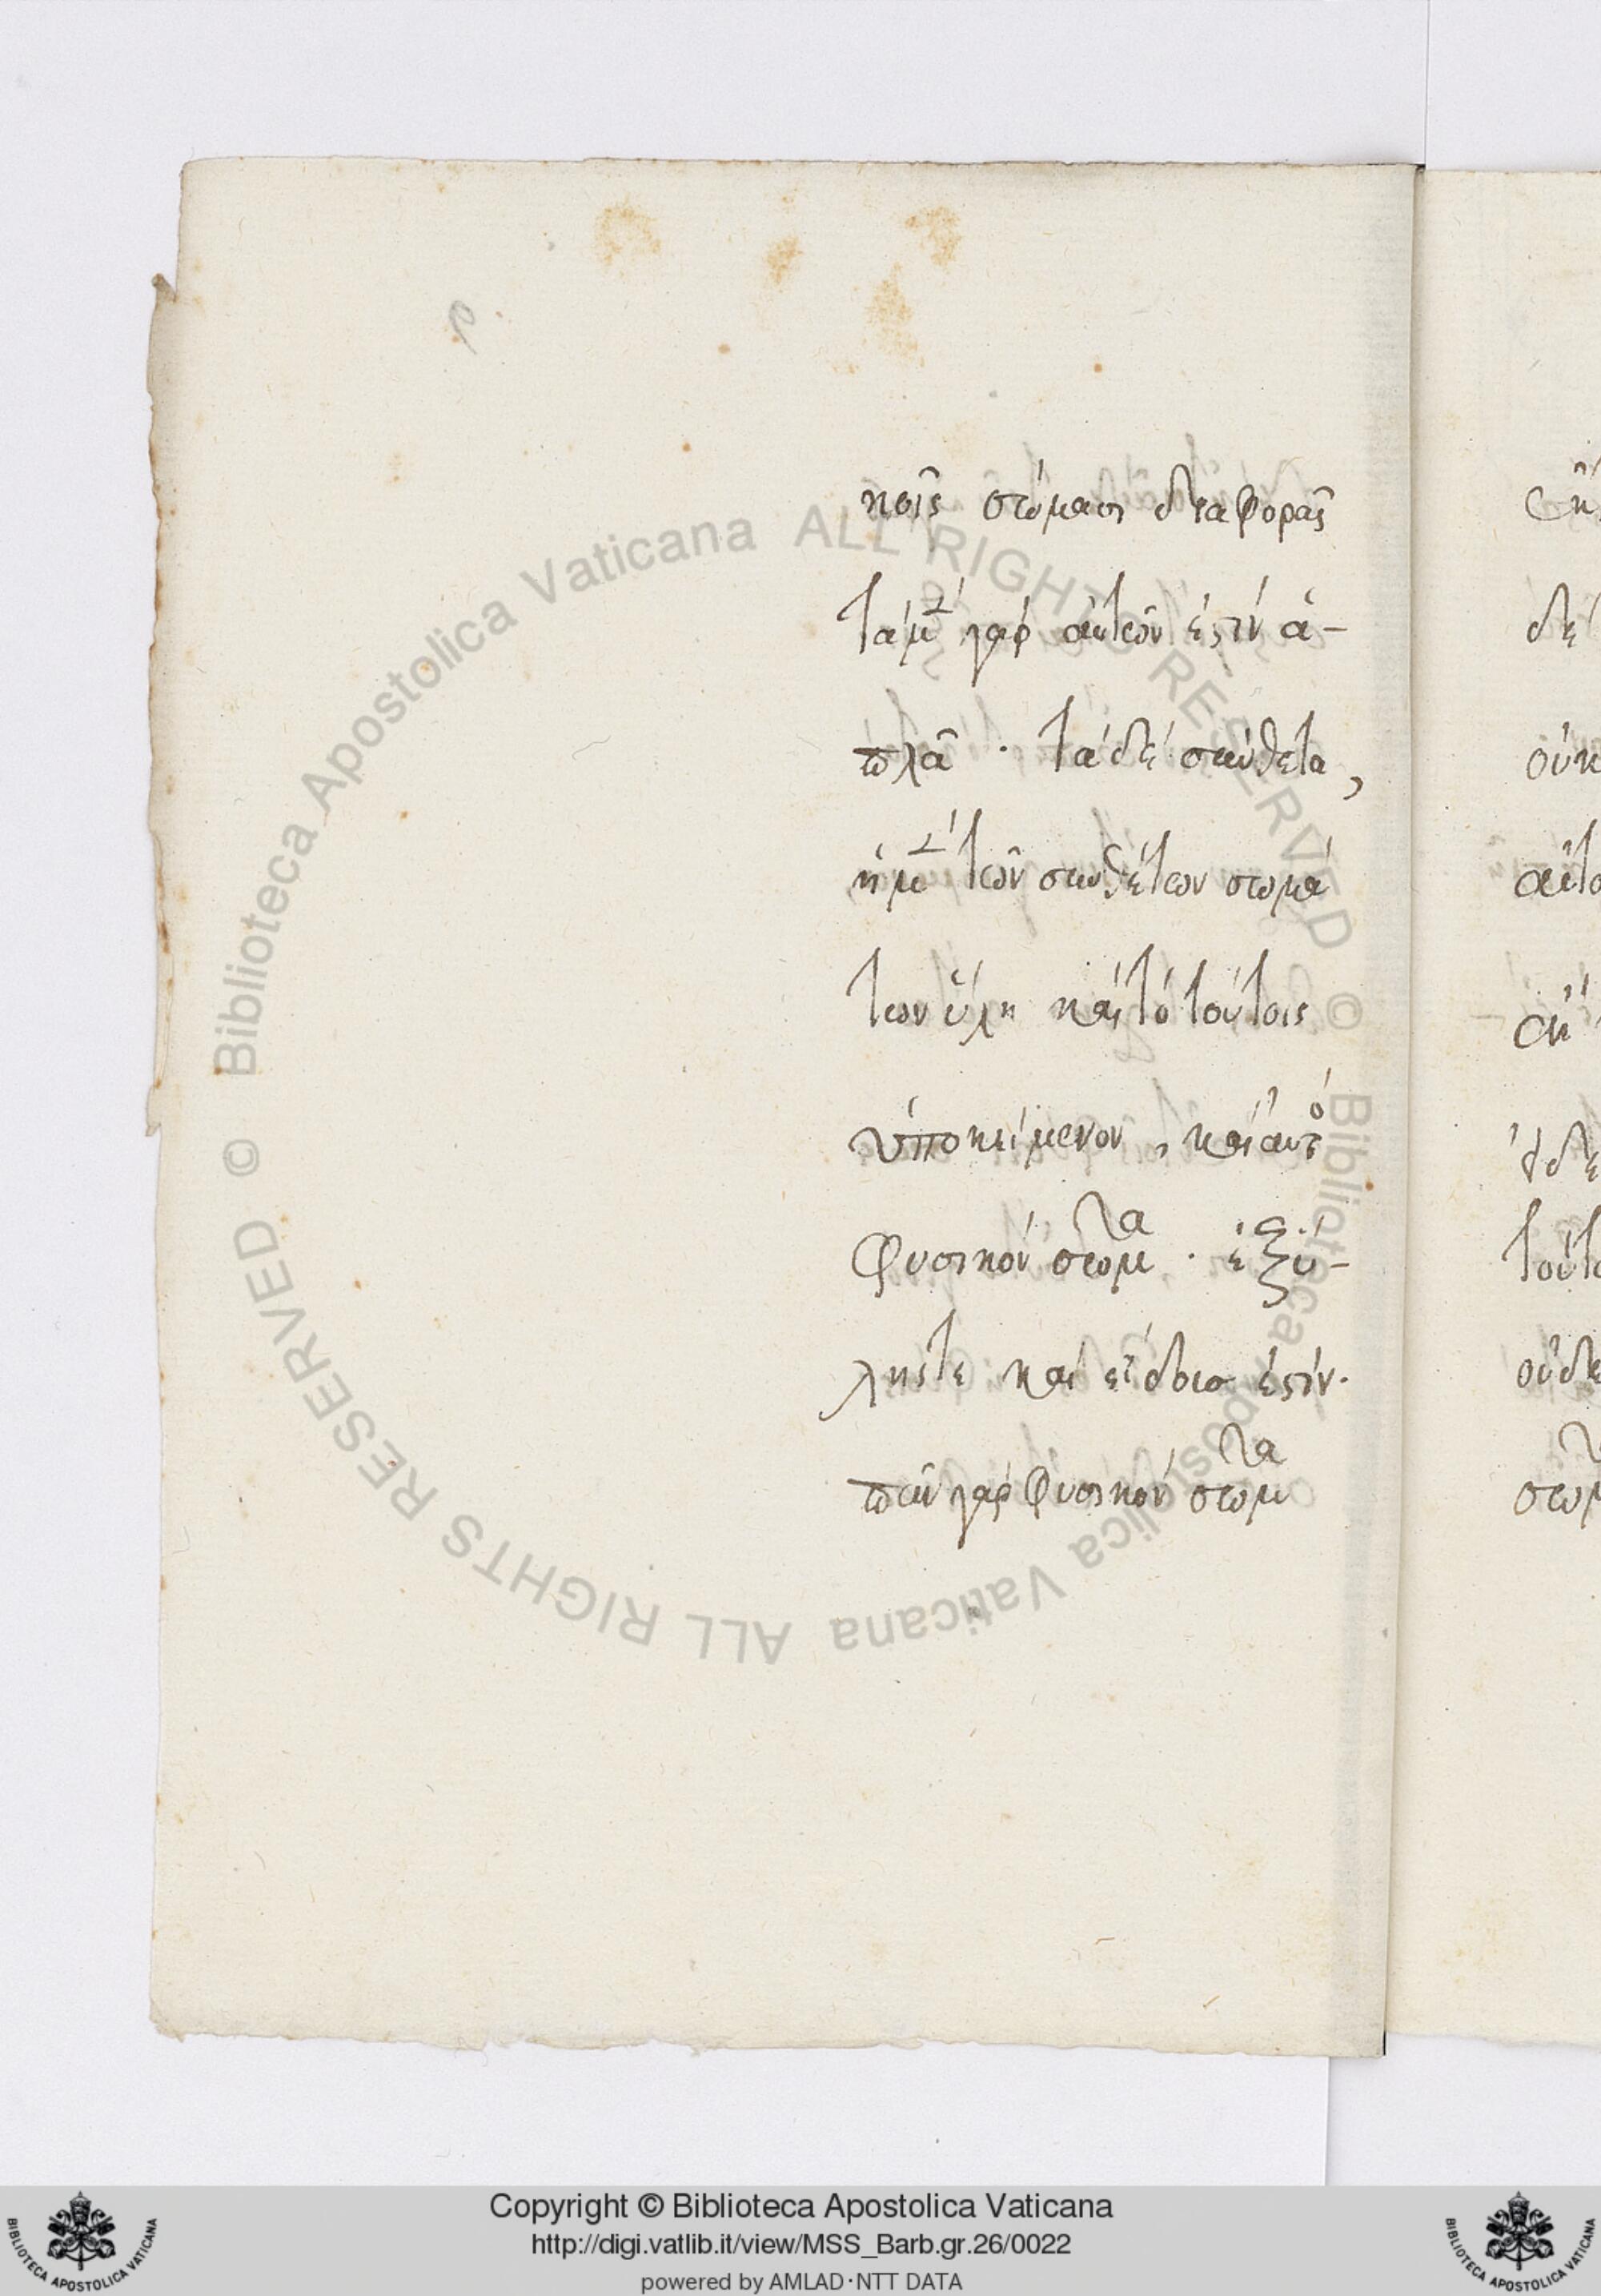 κοῖς σώμασι διαφορᾶς
τὰ μ̀ γὰρ αὐτῶν ἐστὶν ἁ-
πλᾶ · τὰ δὲ σύνθετα,
ἡ μ̀ τῶν συνθέτων σωμά
των ὕλη καὶ τὸ τούτοις
ὑποκείμενον, καὶ αὐτὸ
φυσικὸν σῶμα · ἐξ ὕ-
λης τε καὶ εἴδους ἐστίν·
πᾶν γὰρ φυσικὸν σῶμα
δὲ
οὐκ
οὐδε
σωμ
Biblioteca Apostolica Vaticana ALL RIGHTS RESERVED ©
Biblioteca Apostolica Vaticana ALL RIGHTS RESERVED ©
Copyright © Biblioteca Apostolica Vaticana
http://digi.vatlib.it/view/MSS_Barb.gr.26/0022
powered by AMLAD·NTT DATA
BIBLIOTECA APOSTOLICA VATICANA
BIBLIOTECA APOSTOLICA VATICANA